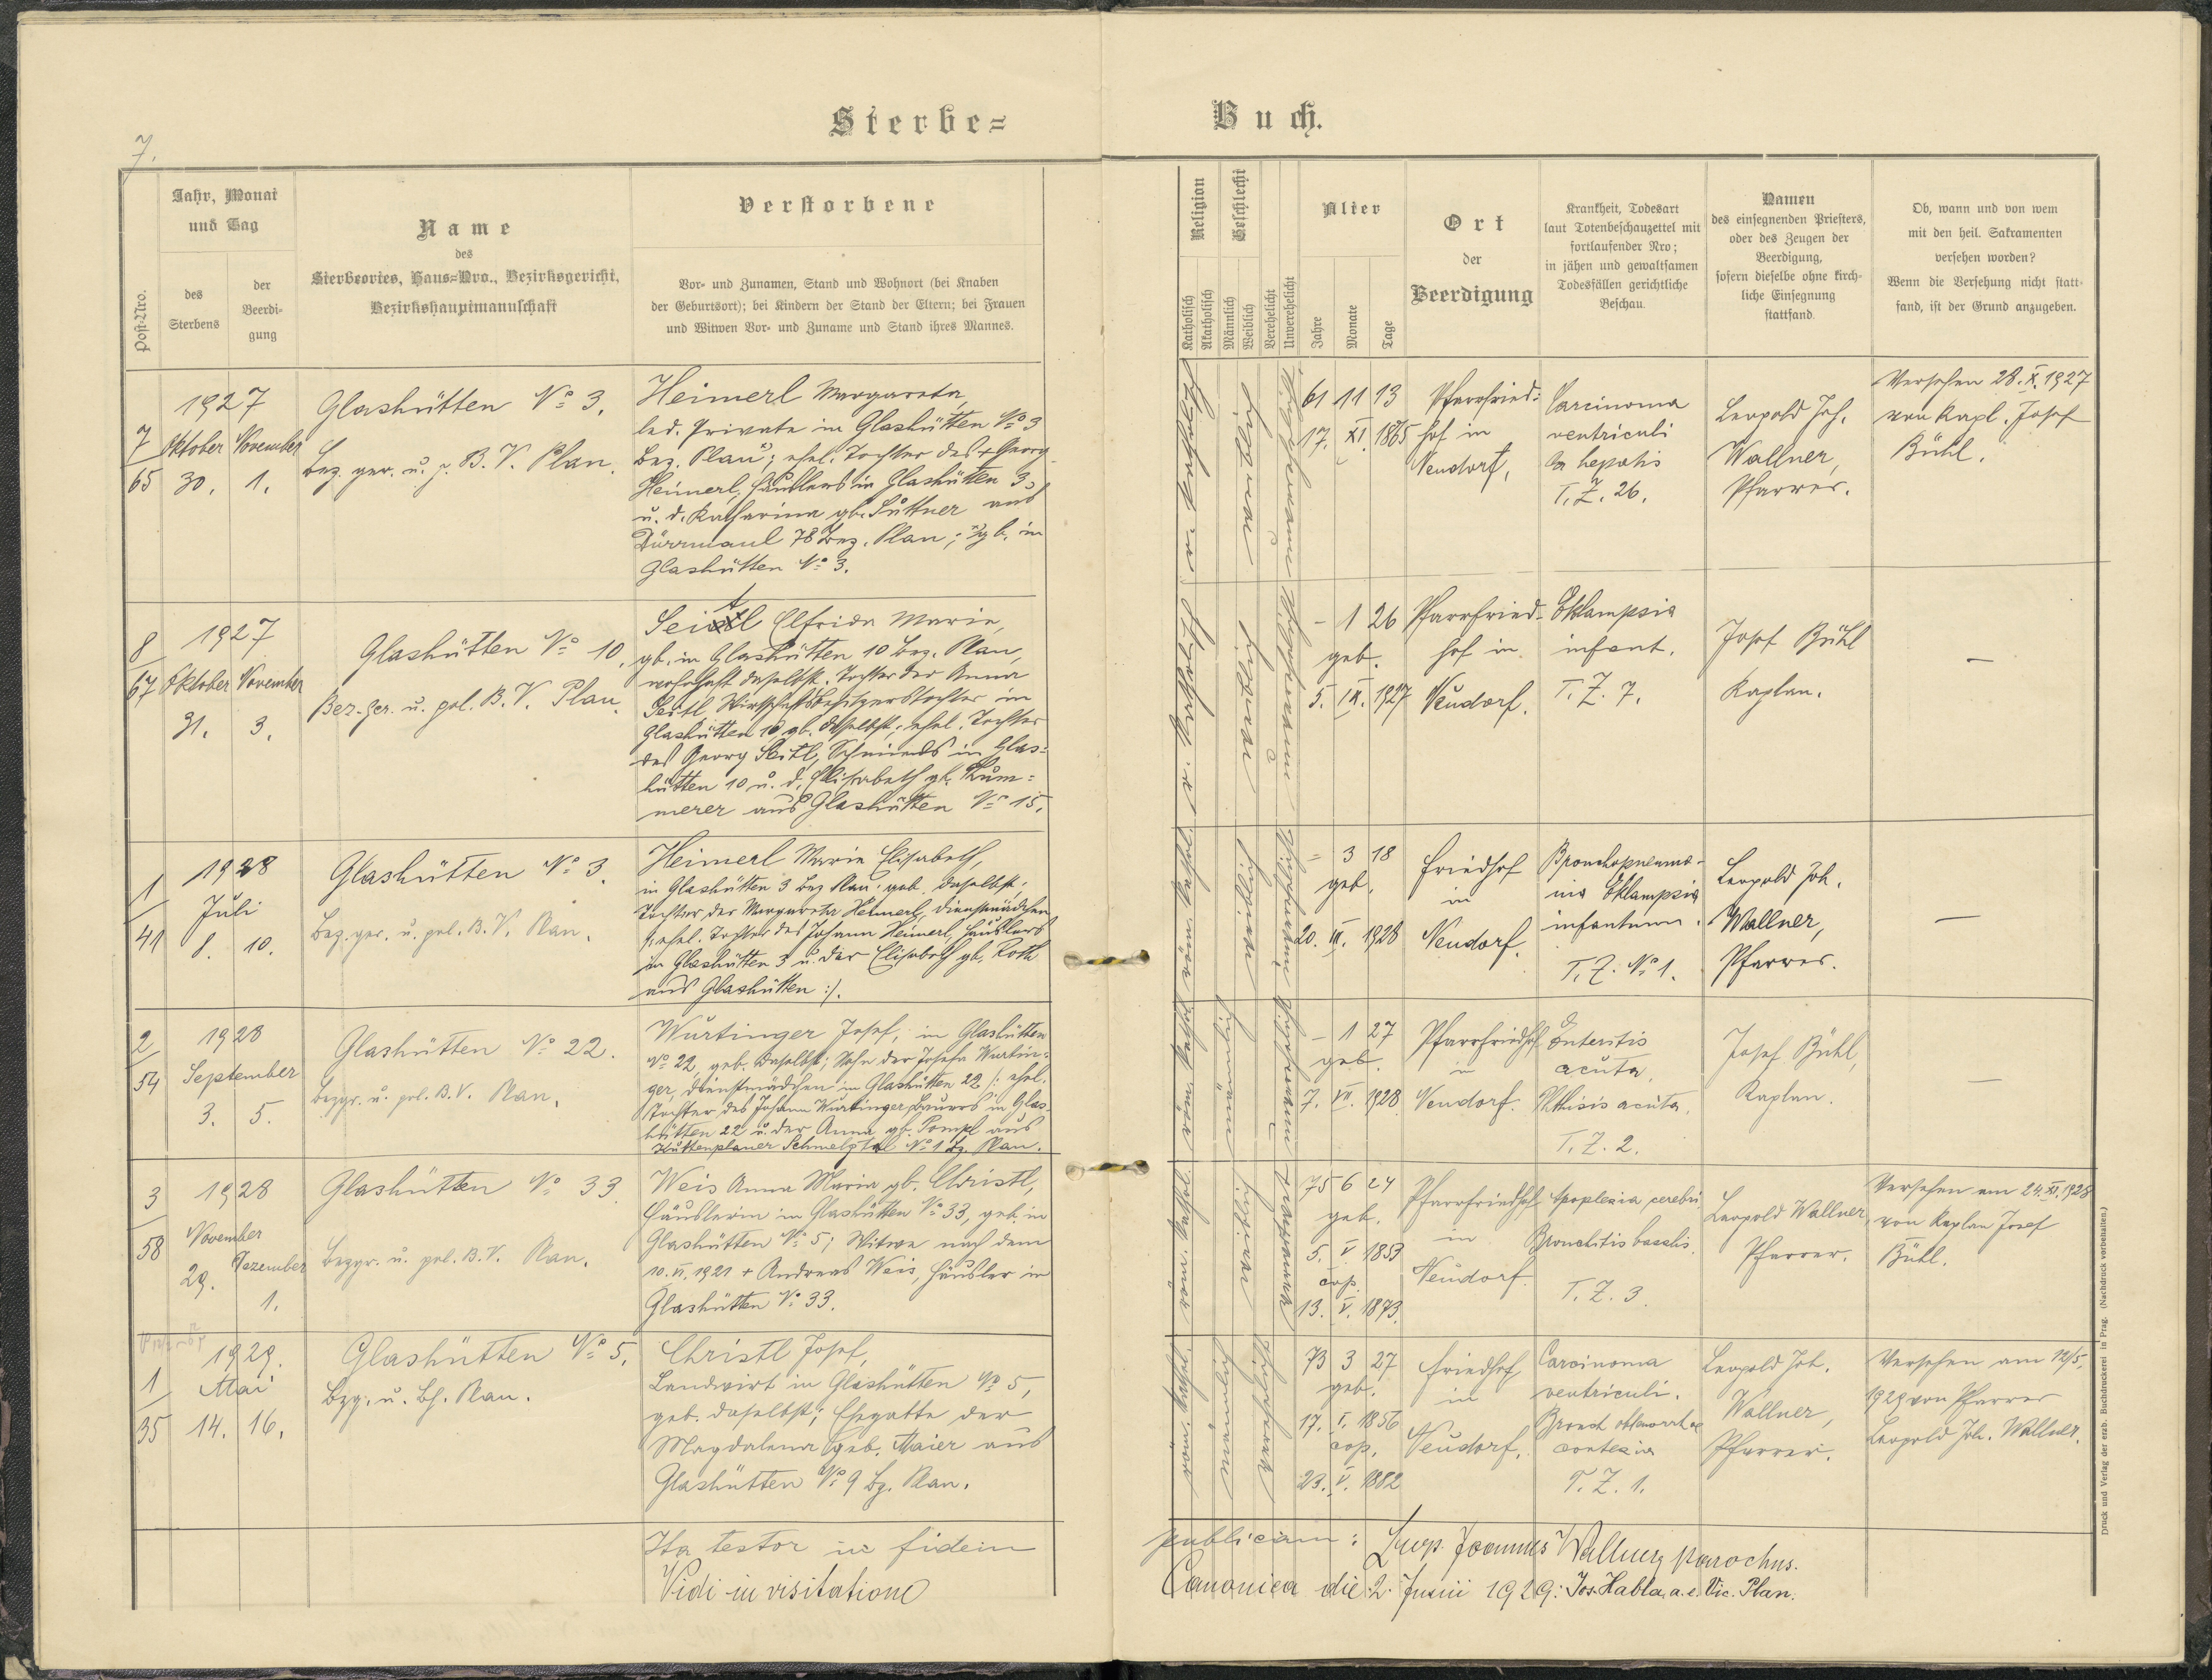 Sterbe=
Buch.
7.
Post-Nro.
Jahr, Monat
und Tag
des
Sterbens
der
Beerdi-
gung
Name
des
Sterbeortes, Haus-Nro., Bezirksgericht,
Bezirkshauptmannschaft
Verstorbene
Vor- und Zunamen, Stand und Wohnort (bei Knaben
der Geburtsort); bei Kindern der Stand der Eltern; bei Frauen
und Witwen Vor- und Zuname und Stand ihres Mannes.
Religion
Katholisch
Akatholisch
Geschlecht
Männlich
Weiblich
Verehelicht
Unverehelicht
Alter
Jahre
Monate
Tage
Ort
der
Beerdigung
Krankheit, Todesart
laut Totenbeschauzettel mit
fortlaufender Nro;
in jähen und gewaltsamen
Todesfällen gerichtliche
Beschau.
Namen
des einsegnenden Priesters,
oder des Zeugen der
Beerdigung,
sofern dieselbe ohne kirch-
liche Einsegnung
stattfand.
Ob, wann und von wem
mit den heil. Sakramenten
versehen worden?
Wenn die Versehung nicht statt-
fand, ist der Grund anzugeben.
7
65
1927
Oktober November
30. 1.
Glashütten No 3.
Bez. ger. u. p. B. V. Plan.
Heimerl Margareta,
led. Private in Glashütten No 3
Bez. Plan; ehel. Tochter des + Georg
Heimerl, Häuslers in Glashütten 3
u. d. Katharina gb. Süttner aus
Dürrmaul 78 Bez. Plan; gb. in
Glashütten No 3.
röm. katholisch
weiblich
61 11 13
17. XI. 1865
Pfarrfried=
hof in
Neudorf,
Carcinoma
ventriculi
hepatis
T. Z. 26.
Leopold Joh.
Wallner,
Pfarrer.
Versehen 28. X. 1927
von Kapl. Josef
Bühl.
8
67
1927
Oktober November
31. 3.
Glashütten No 10,
Bez. Ger. u. pol. B. V. Plan.
Seitl Elfrida Maria,
gb. in Glashütten 10 Bez. Plan,
wohnhaft daselbst. Tochter der Anna
Seitl Wirtschaftsbesitzerstochter in
Glashütten 10, gb. daselbst, ehel. Tochter
des Georg Seitl, Schmieds in Glas=
hütten 10 u. d. Elisabeth gb. Küm=
merer aus Glashütten No 15.
röm. katholisch
weiblich
– 1 26
geb.
5. IX. 1927
Pfarrfried-
hof in
Neudorf.
Eklampsia
infant.
T. Z. 7.
Josef Bühl
Kaplan.
–
1
41
1928
Juli
8. 10.
Glashütten No 3.
Bez. ger. u. pol. B. V. Plan.
Heimerl Maria Elisabeth,
in Glashütten 3 Bez Plan; geb. daselbst;
Tochter der Margareta Heimerl, Dienstmädchen
/: ehel. Tochter des Johann Heimerl, Häuslers
in Glashütten 3 u. der Elisabeth gb. Roth
aus Glashütten :/.
röm. kathol.
weiblich
– 3 18
geb.
20. III. 1928
Friedhof
in
Neudorf.
Bronchopneumo-
nia Eklampsia
infantum.
T. Z. No 1.
Leopold Joh.
Wallner,
Pfarrer.
–
2
54
1928
September
3. 5.
Glashütten No 22.
Bezgr. u. pol. B. V. Plan.
Würtinger Josef, in Glashütten
No 22, geb. daselbst; Sohn der Josefa Würtin-
ger, Dienstmädchen in Glashütten 22 /: ehel.
Tochter des Johann Würtinger, Bauers in Glas-
hütten 22 u. der Anna gb. Pompl aus
Küttenplaner Schmelztal No 1 Bz. Plan.
röm. kathol.
männlich
– 1 27
geb.
7. VII. 1928
Pfarrfriedhof
in
Neudorf.
Enteritis
acuta,
Phthisis acuta.
T. Z. 2.
Josef Bühl,
Kaplan.
–
3
58
1928
November
29.
Dezember
1.
Glashütten No 33.
Bezgr. u. pol. B. V. Plan.
Weis Anna Maria gb. Christl,
Häuslerin in Glashütten No 33, geb. in
Glashütten No 5; Witwe nach dem
10. VI. 1921 + Andreas Weis, Häusler in
Glashütten No 33.
röm. kathol.
weiblich
75 6 24
geb.
5. V. 1853
cop.
13. V. 1873.
Pfarrfriedhof
in
Neudorf.
Apoplexia cerebri,
Bronchitis basalis.
T. Z. 3.
Leopold Wallner,
Pfarrer.
Versehen am 24. XI. 1928
von Kaplan Josef
Bühl.
1
35
1929.
Mai
14. 16.
Glashütten No 5,
Bzg. u. Bh. Plan.
Christl Josef,
Landwirt in Glashütten No 5,
geb. daselbst; Ehegatte der
Magdalena geb. Maier aus
Glashütten No 9 Bz. Plan.
röm. kathol.
männlich
verehelicht
73 3 27
geb.
17. I. 1856
cop.
23. V. 1882
Friedhof
in
Neudorf.
Carcinoma
ventriculi.
T. Z. 1.
Leopold Joh.
Wallner,
Pfarrer.
Versehen am 12/5.
1929 von Pfarrer
Leopold Joh. Wallner.
Ita testor in fidem
publicam: Leop. Joannes Wallner, parochus.
Vidi in visitatione
Canonica die 2. Junii 1929: Jos. Habla, a. e. Vic. Plan.
Druck und Verlag der erzb. Buchdruckerei in Prag. (Nachdruck vorbehalten.)